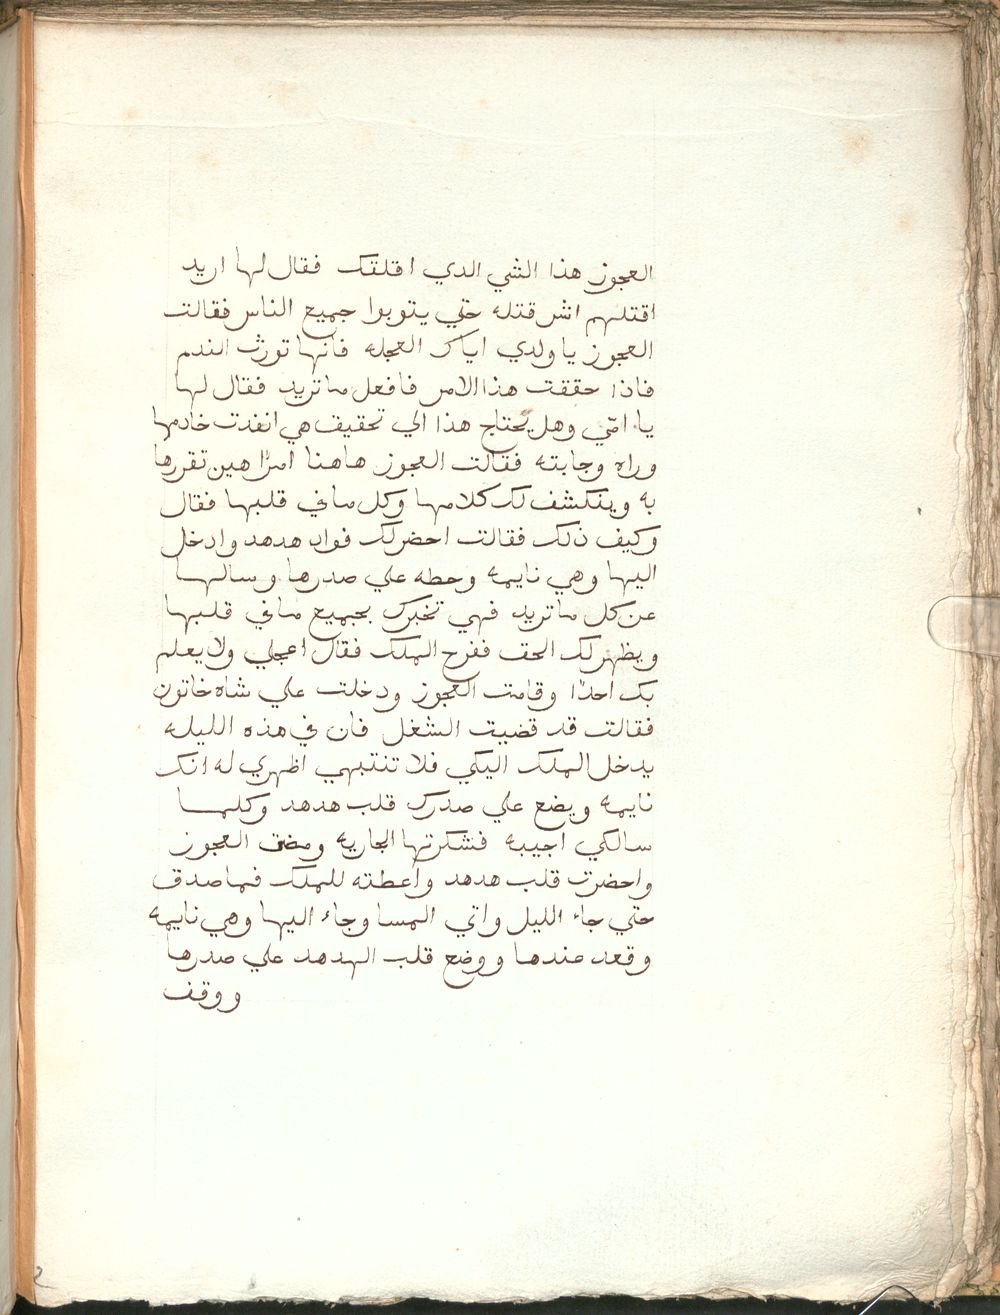 العجوز هذا الشي الدي اقلقك فقال لها اريد
اقتلهم اشر قتله حتي يتوبوا جميع الناس فقالت
العجوز يا ولدي اياك العجله فانها تورث الندم
فاذا حققت هذا الامر فافعل ما تريد فقال لها
يا امّي وهل يحتاج هذا الي تحقيق هي انفذت خادمها
وراه وجابته فقالت العجوز هاهنا امرًا هين تقررها
به وينكشف لك كلامها وكل ما في قلبها فقال
وكيف ذلك فقالت احضر لك فواد هدهد وادخل
اليها وهي نايمه وحطه علي صدرها وسالها
عن كل ما تريد فهي تخبرك بجميع ما في قلبها
ويظهر لك الحق ففرح الملك فقال اعجلي ولا يعلم
بك احدًا وقامت العجوز ودخلت علي شاه خاتون
فقالت قد قضيت الشغل فان في هذه الليله
يدخل الملك اليكي فلا تنتبهي اظهري له انك
نايمه ويضع علي صدرك قلب هدهد وكلما
سالكي اجيبه فشكرتها الجاريه ومضت العجوز
واحضرت قلب هدهد واعطته للملك فما صدق
حتي جاء الليل واتي المسا وجاء اليها وهي نايمه
وقعد عندها ووضع قلب الهدهد علي صدرها
ووقف
2